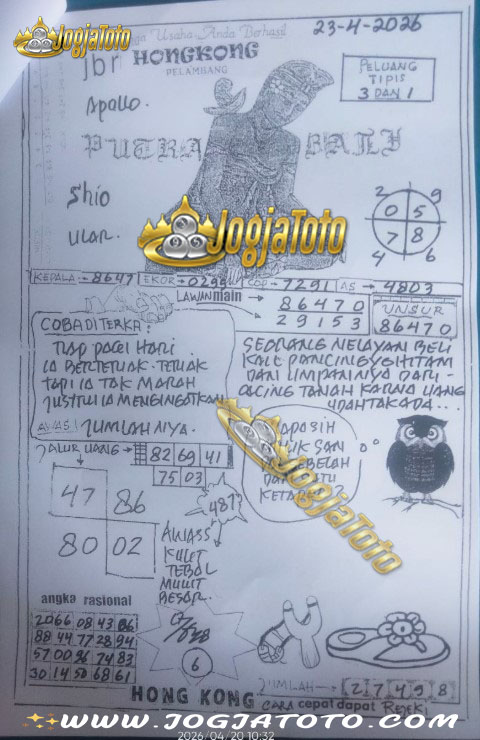 JogjaToto
Usaha Anda Berhasil
23-4-2026
jbr HONGKONG
PELAMBANG
PELUANG
TIPIS
3 DAN 1
Apollo.
PUTRA BALI
Shio
ULAR.
2 9
0 5
7 8
4 6
JogjaToto
KEPALA → 8647 EKOR → 0299 COP → 7291 AS → 4803
LAWAN main → 86470
29153
UNSUR
86470
COBA DITERKA:
TIAP PAGI HARI
IA BERTERIAK-TERIAK
TAPI IA TAK MARAH
JUSTRU IA MENGINGATKAN
AWAS! JUMLAHNYA.
SEORANG NELAYAN BELI
KAIL PANCING YG HITAM
DAN UMPANNYA DARI
CACING TANAH KARNA UANG
UDAH TAK ADA...
JALUR UANG → 82 69 41
75 03
487?
47 86
80 02
AWASS
KULIT
TEBAL
MULUT
BESAR.
JogjaToto
angka rasional
20 66 08 43 86
88 44 77 28 94
57 00 96 74 83
30 14 50 68 61
6
HONG KONG
JUMLAH → 2 7 4 9 8
CARA cepat dapat REJEKI
WWW.JOGJATOTO.COM
2026/04/20 10:32